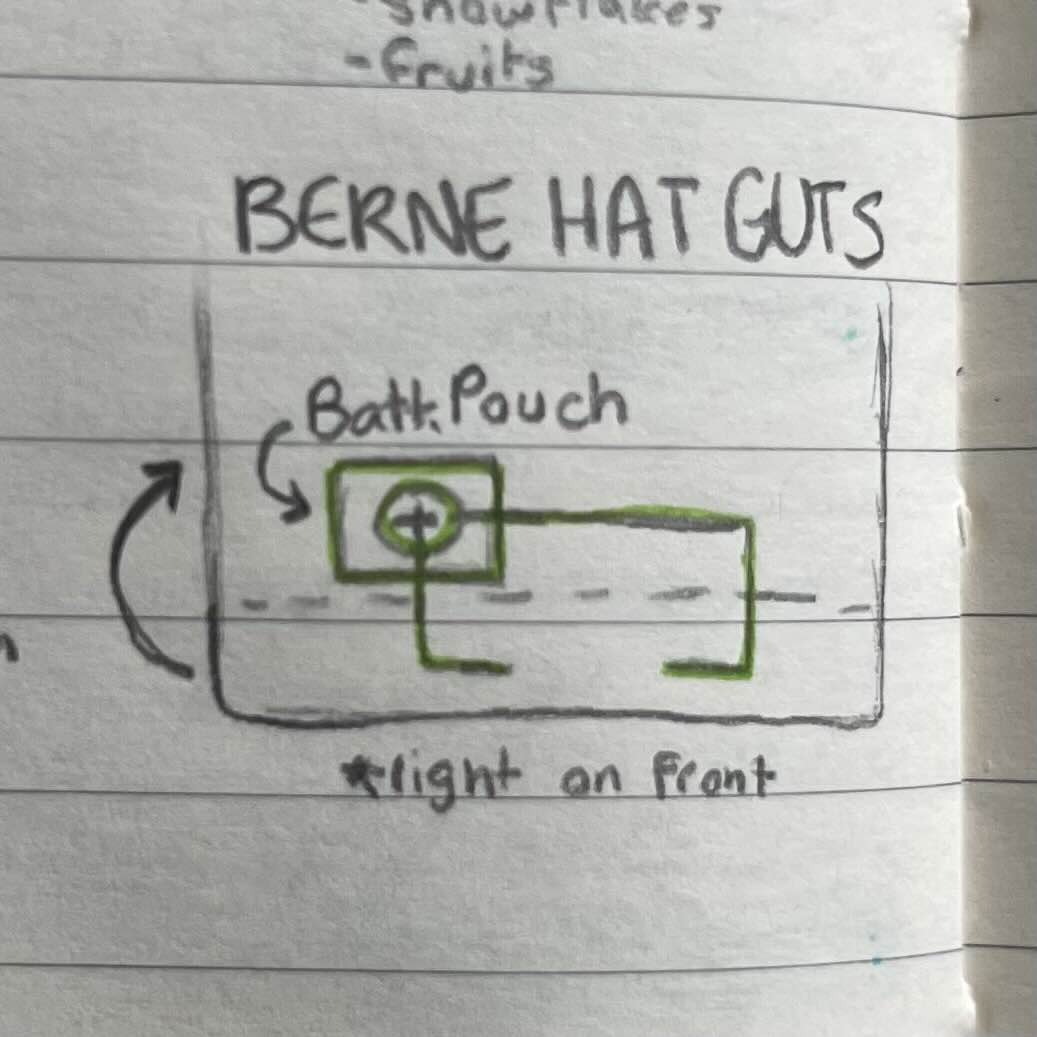 snowflakes
-fruits
BERNE HAT GUTS
Batt. Pouch
+
*right on front